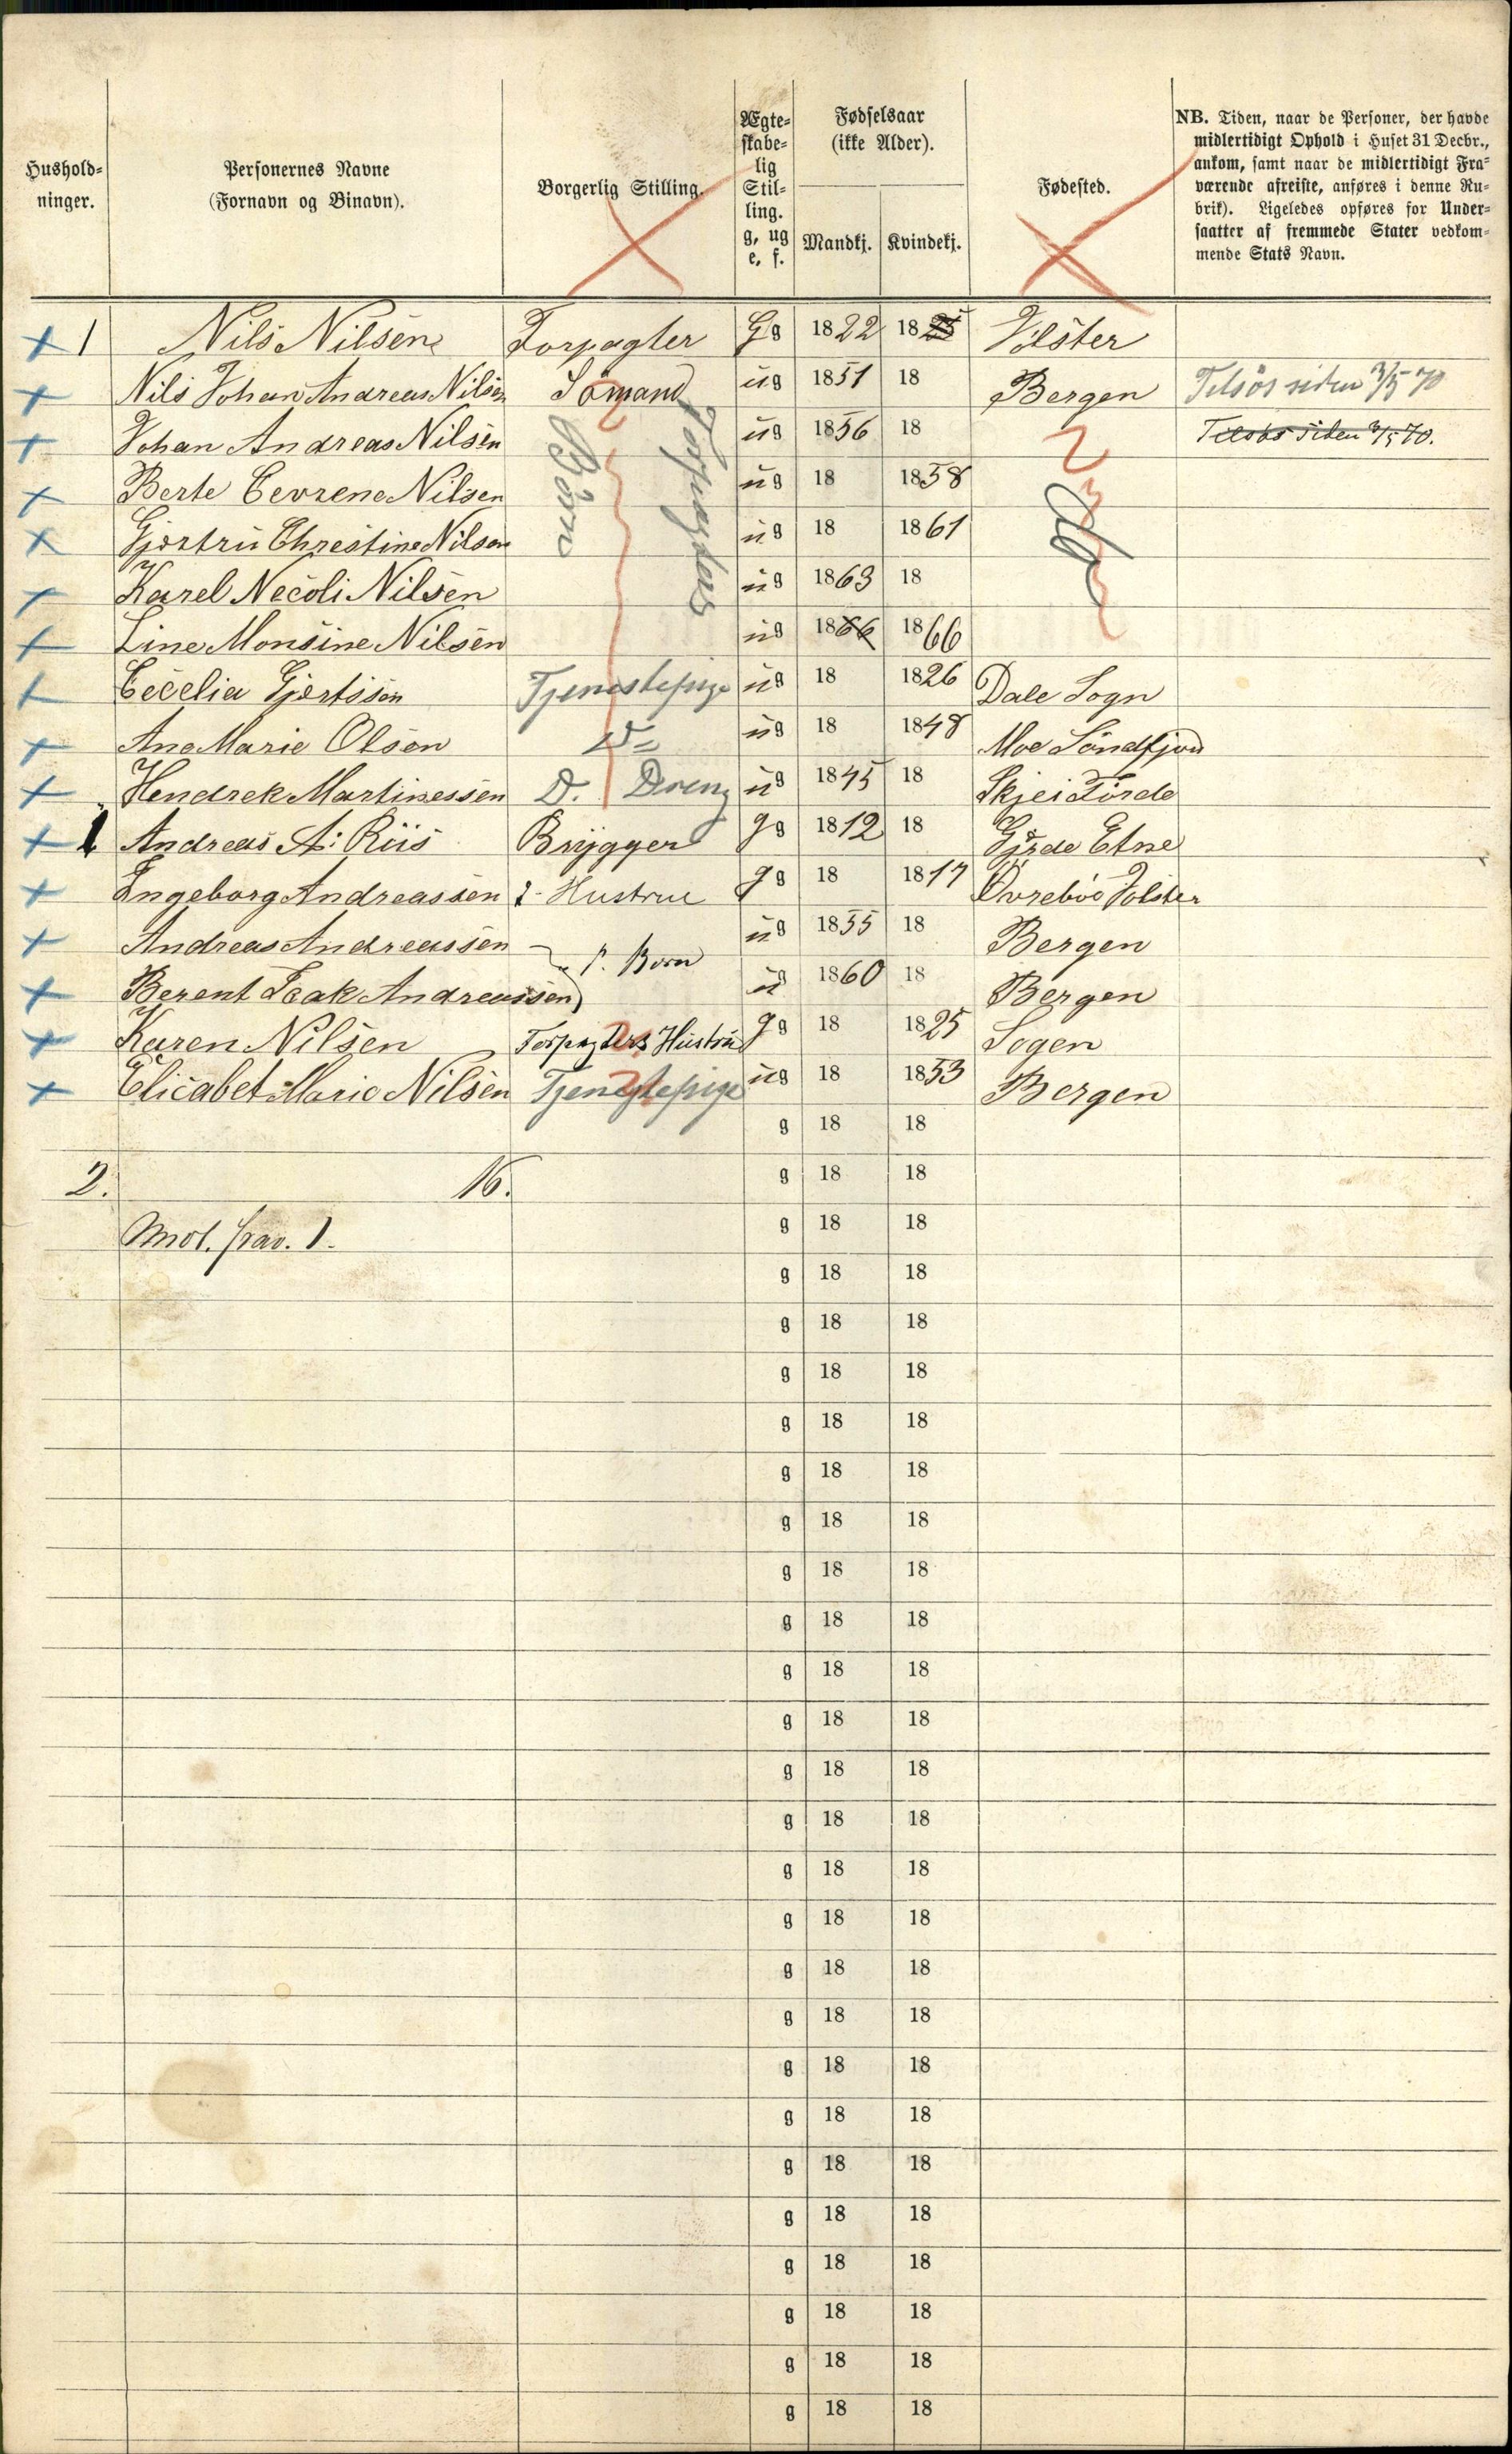 Hushold-
ninger.
Personernes Navne
(Fornavn og Binavn).
Borgerlig Stilling.
Ægte-
skabe-
lig
Stil-
ling.
g, ug
e, f.
Fødselsaar
(ikke Alder).
Mandkj. Kvindekj.
Fødested.
NB. Tiden, naar de Personer, der havde
midlertidigt Ophold i Huset 31 Decbr.,
ankom, samt naar de midlertidigt Fra-
værende afreiste, anføres i denne Ru-
brik). Ligeledes opføres for Under-
saatter af fremmede Stater vedkom-
mende Stats Navn.
1 Nils Nilsen Forpagter Gg 1822 1825 Jölster
Nils Johan Andreas Nilsen Sömand ug 1851 18 Bergen Tilsös siden 3/5 70
Johan Andreas Nilsen ug 1856 18 Tilsös siden 3/5 70.
Berte Cevrene Nilsen ug 18 1858
Gjertru Christine Nilsen ug 18 1861
Karel Necoli Nilsen ug 1863 18
Line Monsine Nilsen ug 1866 1866
Forpagters
Börn
Do
Cecelia Gjertsen Tjenestepige ug 18 1826 Dale Sogn
Ane Marie Olsen D= ug 18 1848 Moe Söndfjord
Hendrek Martinessen D. Dreng ug 1845 18 Skjei Förde
1 Andreas A: Riis Brygger gg 1812 18 Gjrde Etne
Engeborg Andreassen Hustrue gg 18 1817 Övreböo Jolster
Andreas Andreassen ug 1855 18 Bergen
Born
Berent Isak Andreassen ug 1860 18 Bergen
Karen Nilsen Forpagters Hustru gg 18 1825 Sogen
Elicabet Marie Nilsen Tjenestepige ug 18 1853 Bergen
g 18 18
2. 16. g 18 18
Mdl. frav. 1. g 18 18
g 18 18
g 18 18
g 18 18
g 18 18
g 18 18
g 18 18
g 18 18
g 18 18
g 18 18
g 18 18
g 18 18
g 18 18
g 18 18
g 18 18
g 18 18
g 18 18
g 18 18
g 18 18
g 18 18
g 18 18
g 18 18
g 18 18
g 18 18
g 18 18